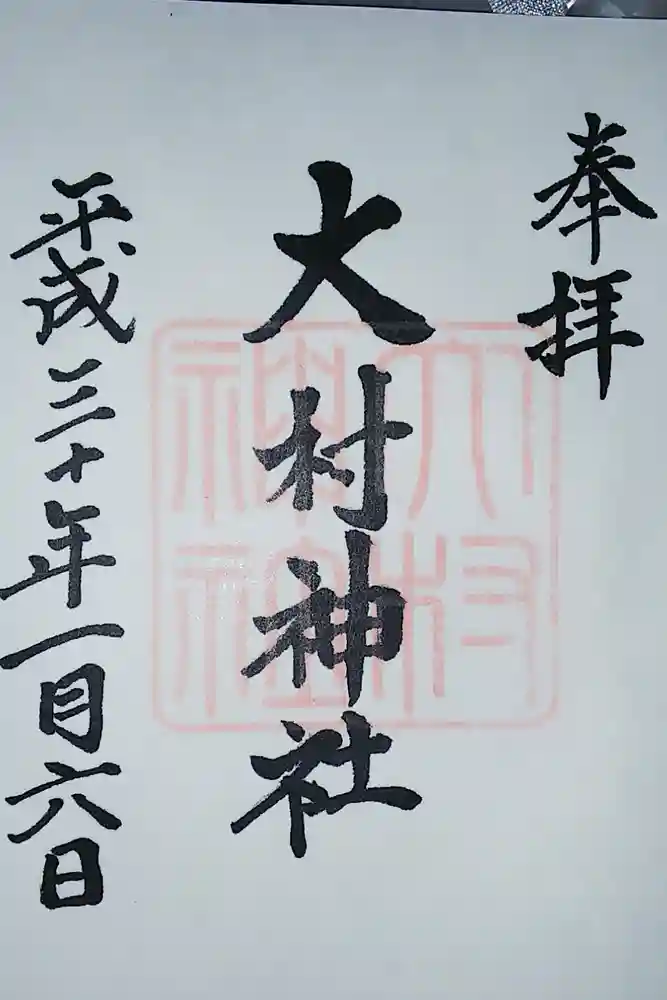 奉拝
大村神社
大村神社
平成三十年一月六日